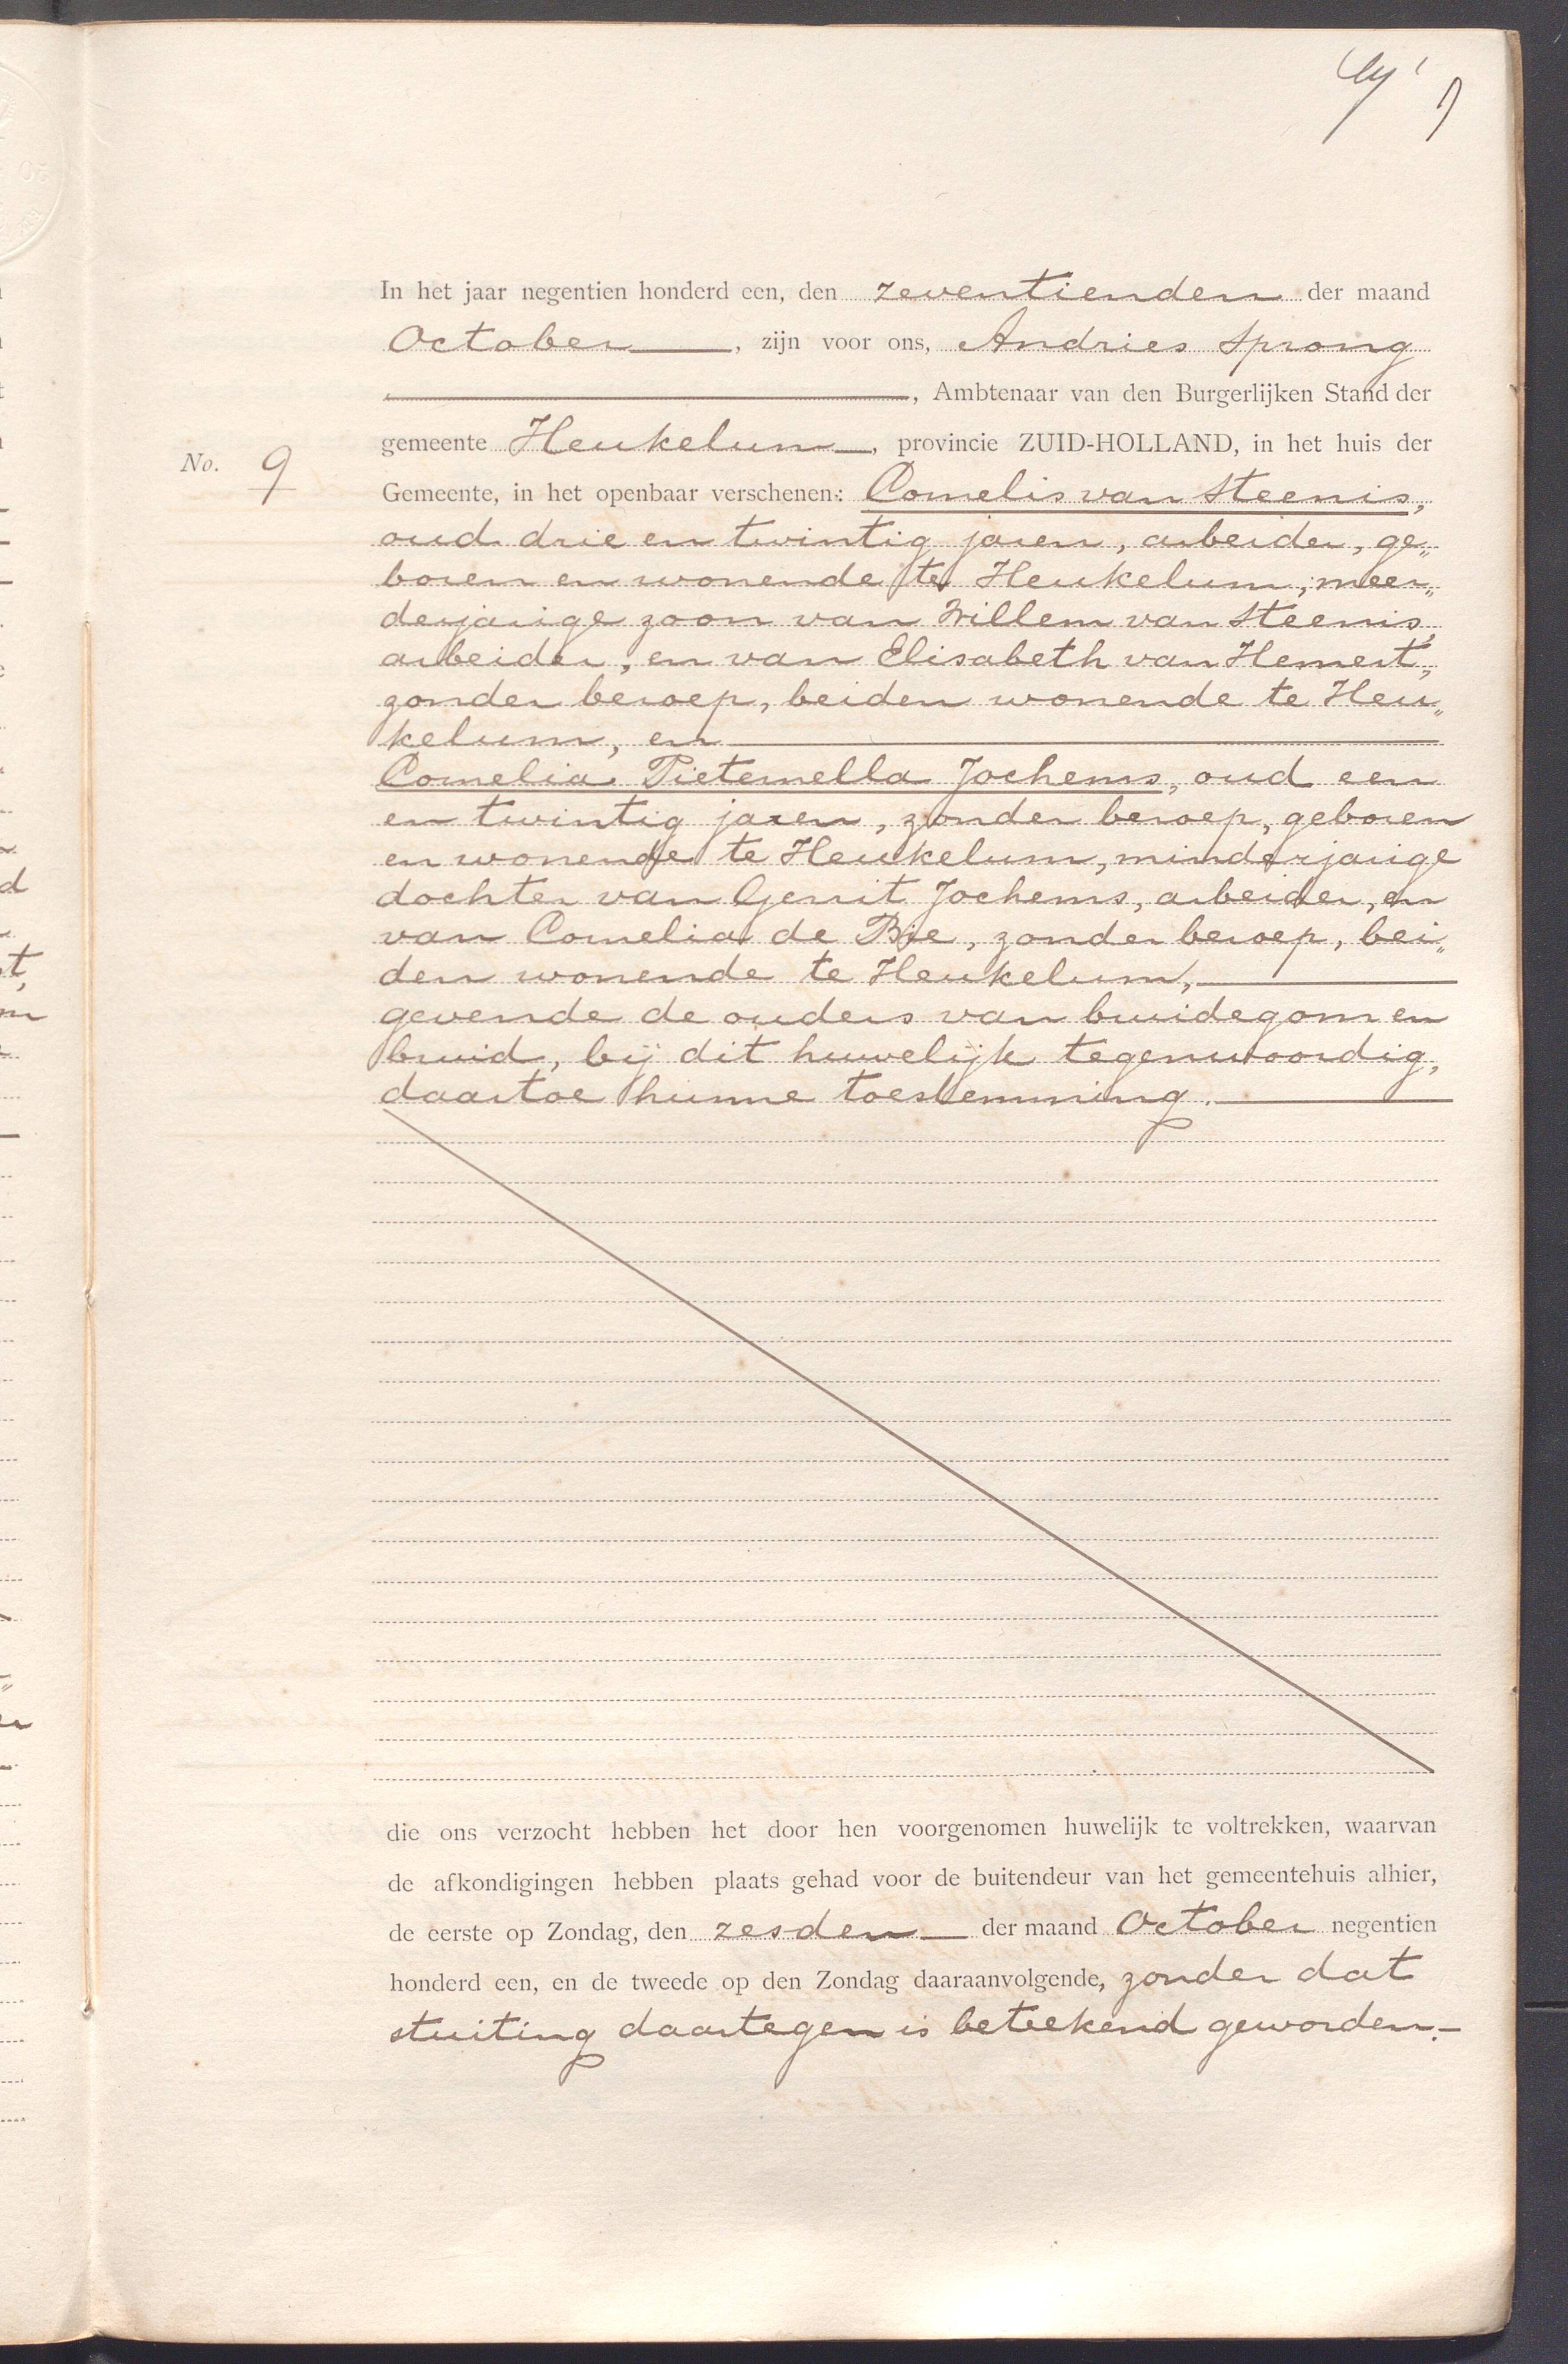 In het jaar negentien honderd een, den zeventienden der maand
October, zijn voor ons, Andries Sprong
, Ambtenaar van den Burgerlijken Stand der
gemeente Heukelum, provincie ZUID-HOLLAND, in het huis der
No. 9
Gemeente, in het openbaar verschenen: Cornelis van Steenis,
oud drie en twintig jaren, arbeider, ge„
boren en wonende te Heukelum, meer„
derjarige zoon van Willem van Steenis,
arbeider, en van Elisabeth van Hemert,
zonder beroep, beiden wonende te Heu„
kelum, en
Cornelia Pieternella Jochems, oud een
en twintig jaren, zonder beroep, geboren
en wonende te Heukelum, minderjarige
dochter van Gerrit Jochems, arbeider, en
van Cornelia de Bie, zonder beroep, bei„
den wonende te Heukelum,
gevende de ouders van bruidegom en
bruid, bij dit huwelijk tegenwoordig,
daartoe hunne toestemming.
die ons verzocht hebben het door hen voorgenomen huwelijk te voltrekken, waarvan
de afkondigingen hebben plaats gehad voor de buitendeur van het gemeentehuis alhier,
de eerste op Zondag, den zesden der maand October negentien
honderd een, en de tweede op den Zondag daaraanvolgende, zonder dat
stuiting daartegen is beteekend geworden.